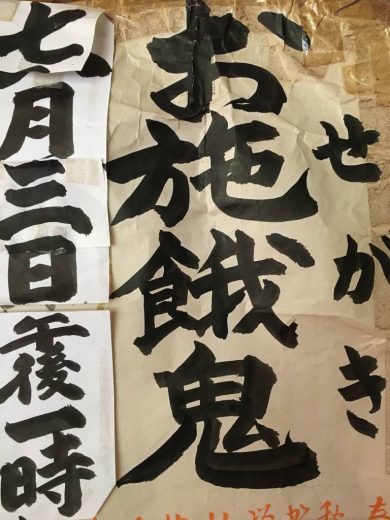 せがき
お施餓鬼
七月三日午後一時